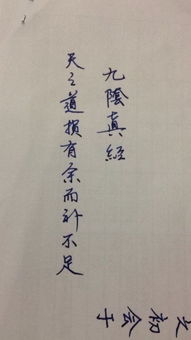 九陰真經
天之道損有余而补不足
文初会子